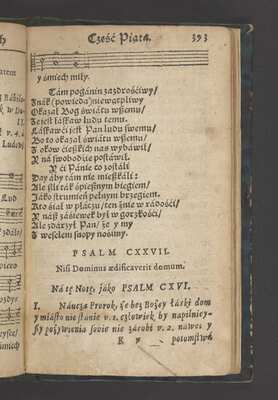 Cześć Piąta. 393
y śmiech miły.
Tám pogánin zazdrościwy/
Jnák (powieda) niewątpliwy
Okazał Bog świátu wszemu/
Iż jest łáskaw ludu temu.
Łáskawći jest Pan ludu swemu/
Bo to okazał świátu wszemu/
Z okow ćięszkich nas wybáwił/
N ná swobodzie postáwił.
N ći Pánie co zostáli
Day áby tám nie mieszkáli:
Ale szli ták spiesznym biegiem/
Jáko strumień pełnym brzegiem.
Kto śiał w płáczu/ ten żnie w rádości/
N nász zaśiewek był w gorzkośći/
Ale zdárzył Pan/ że y my
Z weselem snopy nośimy.
PSALM CXXVII.
Nisi Dominus ædificaverit domum.
Ná tę Notę, jáko PSALM CXVI.
I. Náucza Prorok, że bez Bożey łáski dom
y miásto nie stánie v. 1. człowiek by napilniey-
szy pożywienia sobie nie zárobi v. 2. náwet y
K y potomstwá